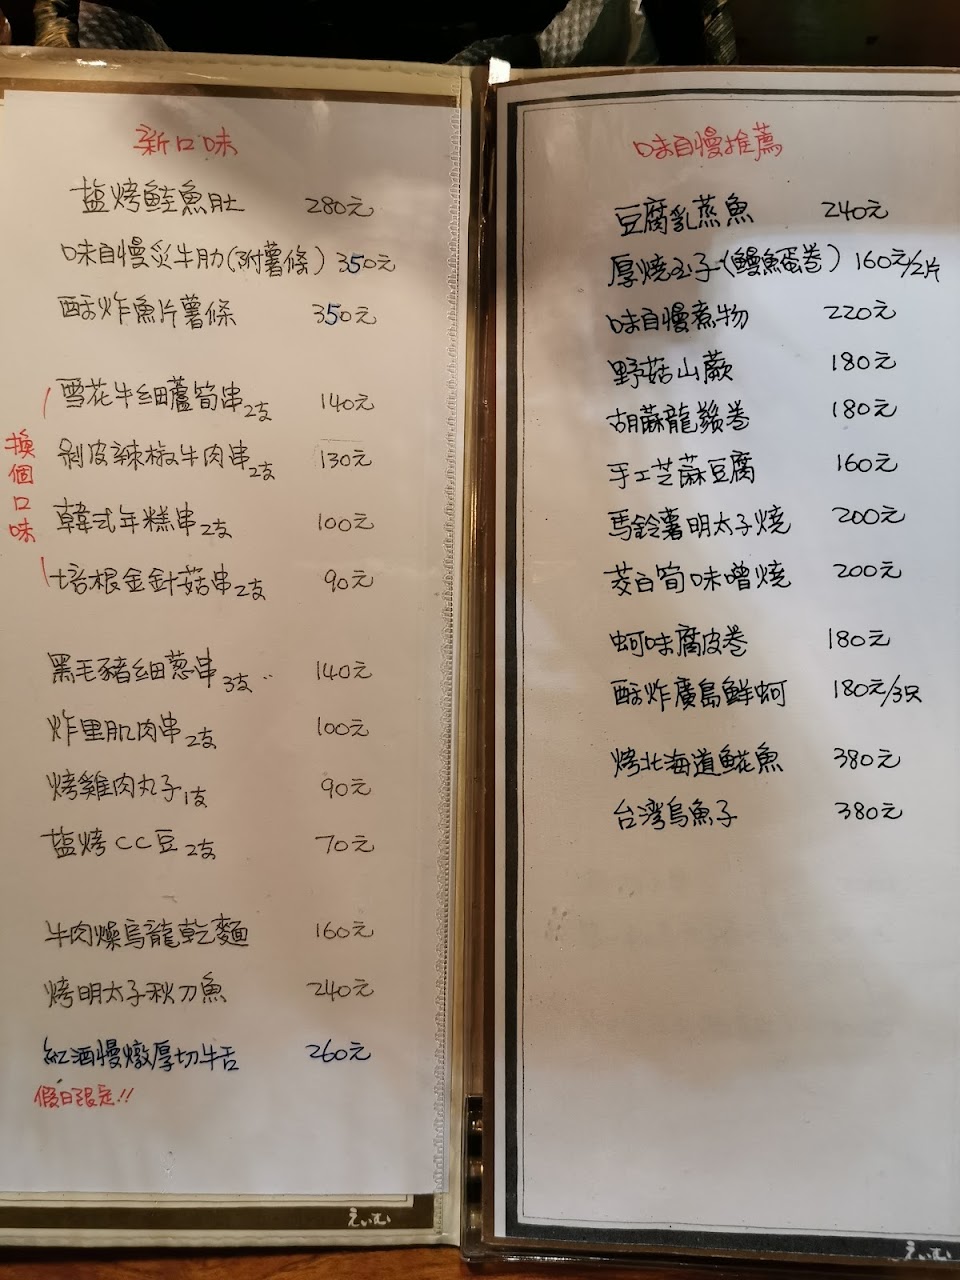 新口味
塩烤鮭魚肚 280元
味自慢炙牛肋(附薯條) 350元
酥炸魚片薯條 350元
換個口味
雪花牛細蘆筍串2支 140元
剝皮辣椒牛肉串2支 130元
韓式年糕串2支 100元
培根金針菇串2支 90元
黑毛豬細蔥串3支 140元
炸里肌肉串2支 100元
烤雞肉丸子1支 90元
塩烤CC豆2支 70元
牛肉燥烏龍乾麵 160元
烤明太子秋刀魚 240元
紅酒慢燉厚切牛舌 260元
假日限定!!
えいむ
味自慢推薦
豆腐乳蒸魚 240元
厚燒玉子(鰻魚蛋卷) 160元/2片
味自慢煮物 220元
野菇山蕨 180元
胡蔴龍鬚卷 180元
手工芝蔴豆腐 160元
馬鈴薯明太子燒 200元
茭白筍味噌燒 200元
蚵味腐皮卷 180元
酥炸廣島鮮蚵 180元/3只
烤北海道鯱魚 380元
台灣烏魚子 380元
えいむ